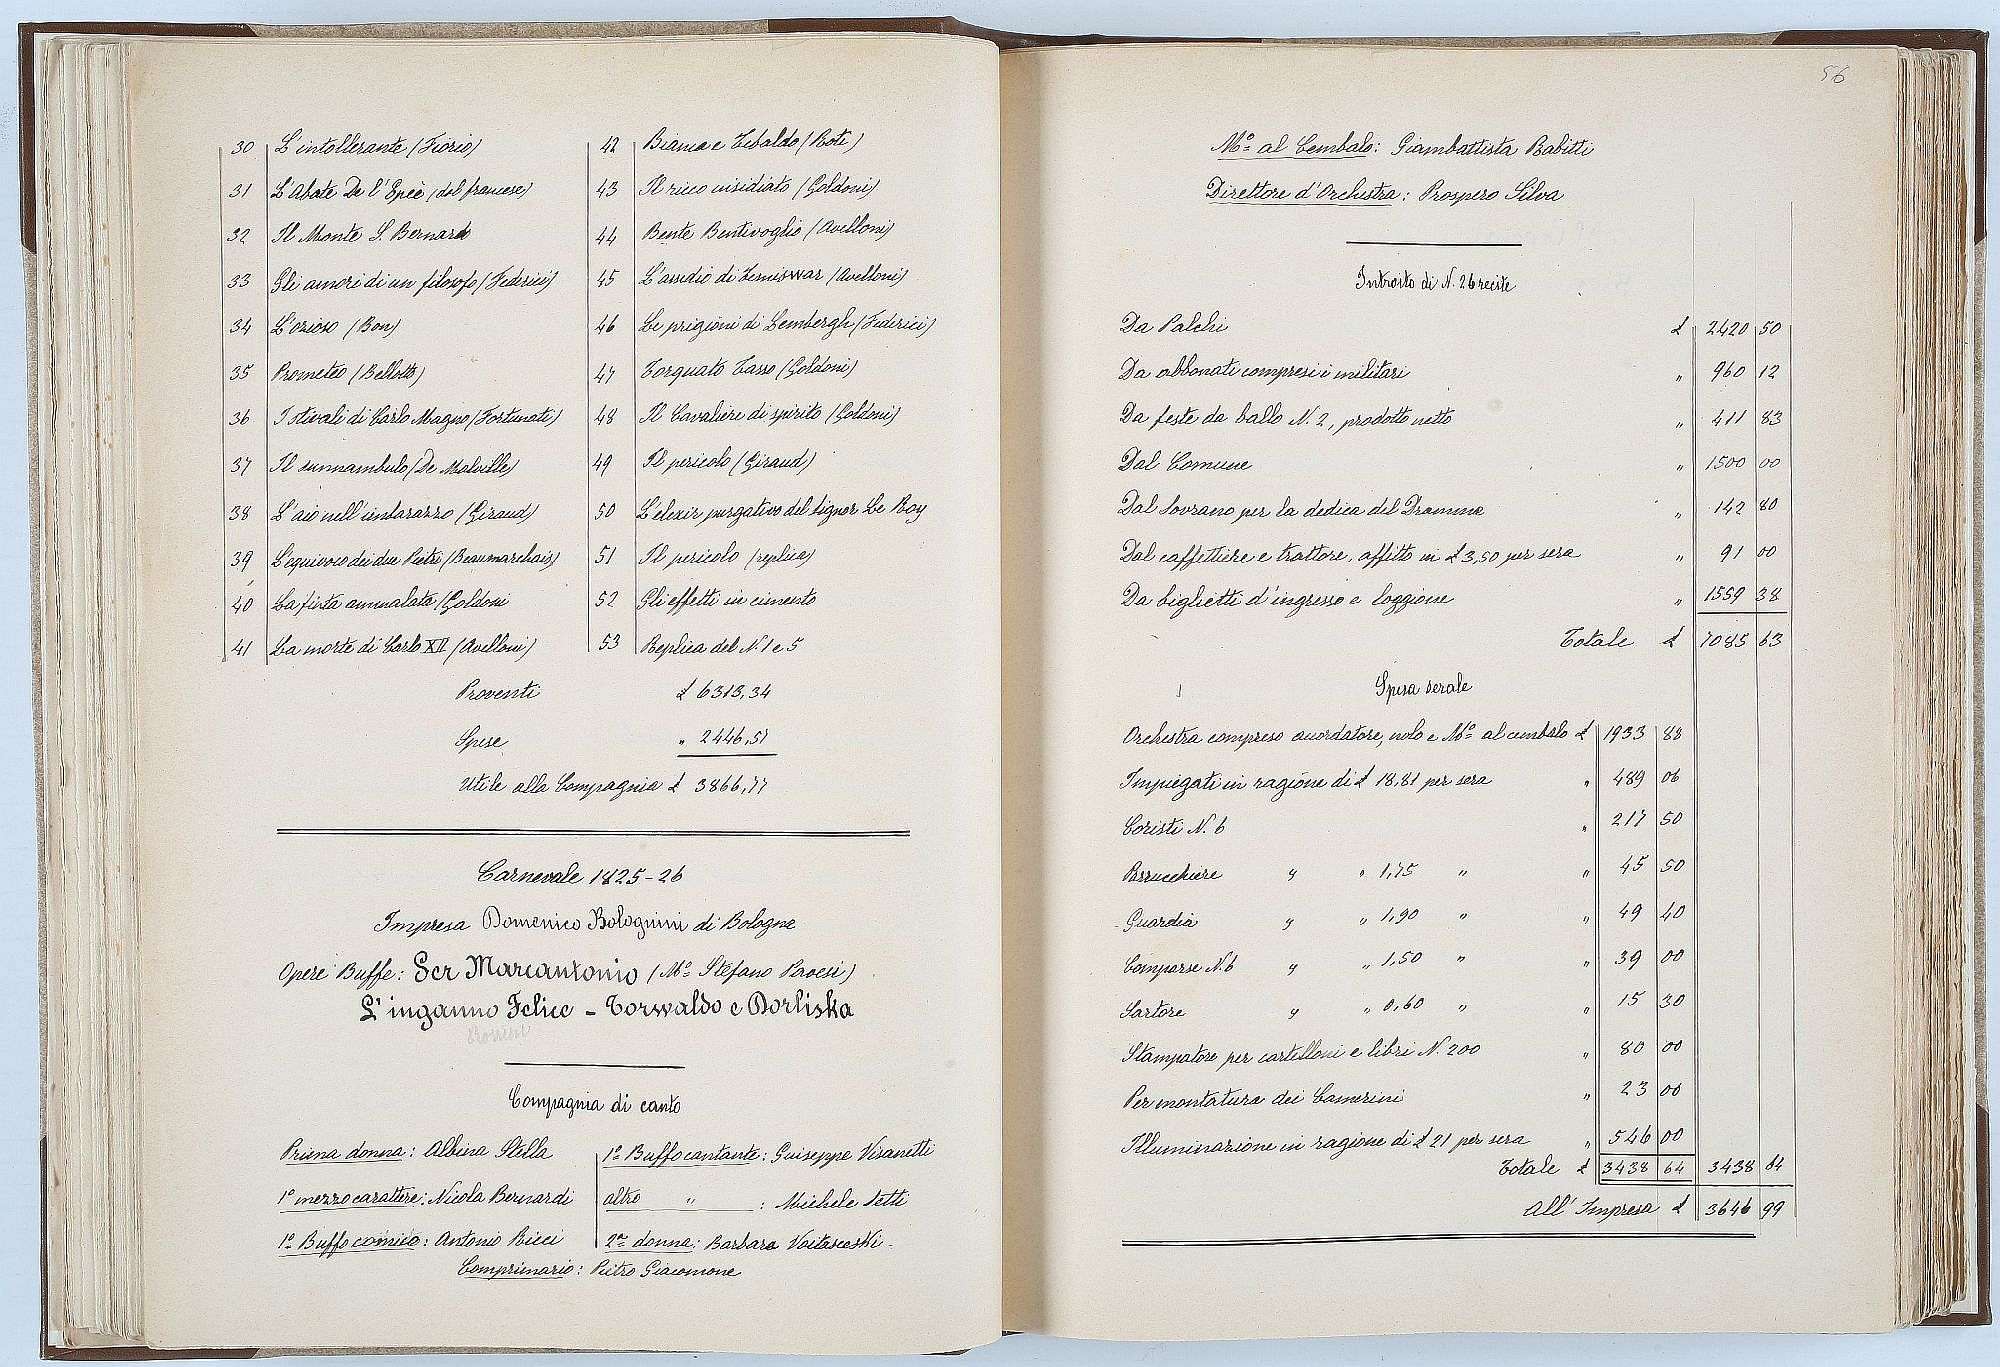 30 L'intollerante (Fiorio)
31 L'Abate De l'Epèè (dal francese)
32 Il Monte S. Bernardo
33 Gli amori di un filosofo (Federici)
34 L'ozioso (Bon)
35 Prometeo (Bellotto)
36 I stivali di Carlo Magno (Fortunati)
37 Il sunnambulo (De Malville)
38 L'aio nell'imbarazzo (Giraud)
39 L'equivoco dei due Pietri (Beaumarchais)
40 La finta ammalata (Goldoni
41 La morte di Carlo XII (Avelloni)
42 Bianca e Tebaldo (Roti)
43 Il ricco insidiato (Goldoni)
44 Bente Bentivoglio (Avelloni)
45 L'assedio di Temiswar (Avelloni)
46 Le prigioni di Lembergh (Federici)
47 Torquato Tasso (Goldoni)
48 Il Cavaliere di spirito (Goldoni)
49 Il pericolo (Giraud)
50 L'elexir purgativo del signor Le Roy
51 Il pericolo (replica)
52 Gli effetti in cimento
53 Replica del N. 1 e 5
Proventi £ 6313,34
Spese " 2446,57
Utile alla Compagnia £ 3866,77
Carnevale 1825-26
Impresa Domenico Bolognini di Bologna
Opere Buffe: Ser Marcantonio (M.º Stefano Pavesi)
L'inganno Felice - Torwaldo e Dorliska
Rossini
Compagnia di canto
Prima donna: Albina Stella
1º mezzo carattere: Nicola Bernardi
1º Buffo comico: Antonio Ricci
1º Buffo cantante: Guiseppe Visanetti
altro " : Michele Vetti
2ª donna: Barbara Voitascoski
Comprimario: Pietro Giacomone
56
Mº al Cembalo: Giambattista Rabitti
Direttore d'Orchestra: Prospero Silva
Introito di N. 26 recite
Da Palchi £ 2420 50
Da abbonati compresi i militari " 960 12
Da feste da ballo N. 2, prodotto netto " 411 83
Dal Comune " 1500 00
Dal Sovrano per la dedica del Dramma " 142 80
Dal caffettiere e trattore, affitto in £ 3,50 per sera " 91 00
Da biglietti d'ingresso e loggione " 1559 38
Totale £ 7085 63
Spesa serale
Orchestra compreso accordatore, nolo e Mº al cembalo £ 1933 88
Impiegati in ragione di £ 18,81 per sera " 489 06
Coristi N. 6 " 217 50
Parrucchiere " " 1,75 " " 45 50
Guardia " " 1,90 " " 49 40
Comparse N. 6 " " 1,50 " " 39 00
Sartore " " 0,60 " " 15 30
Stampatore per cartelloni e libri N. 200 " 80 00
Per montatura dei Camerini " 23 00
Illuminazione in ragione di £ 21 per sera " 546 00
Totale £ 3438 64 3438 64
All' Impresa £ 3646 99